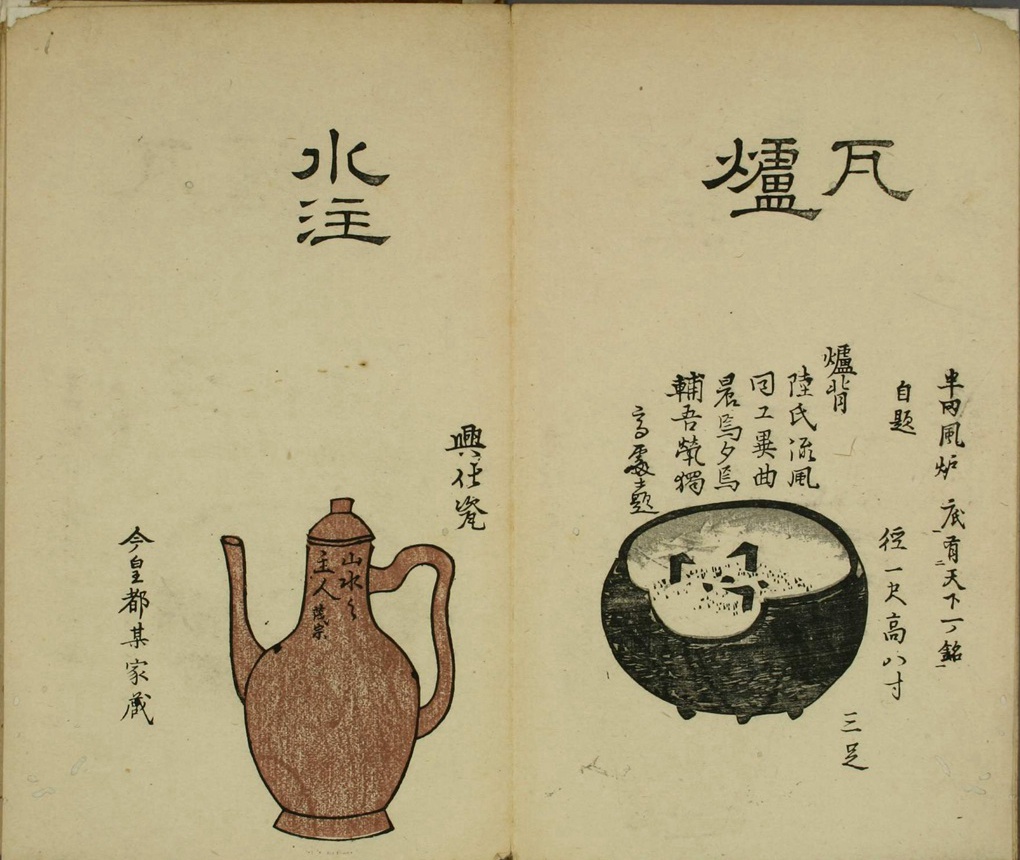 瓦
爐
半田風炉 底有天下一銘
自題
徑一尺高八寸
三足
爐背
陸氏流風
同工異曲
晨焉夕焉
輔吾煢獨
高處士題
水注
興任瓷
山水之
主人
今皇都某家藏